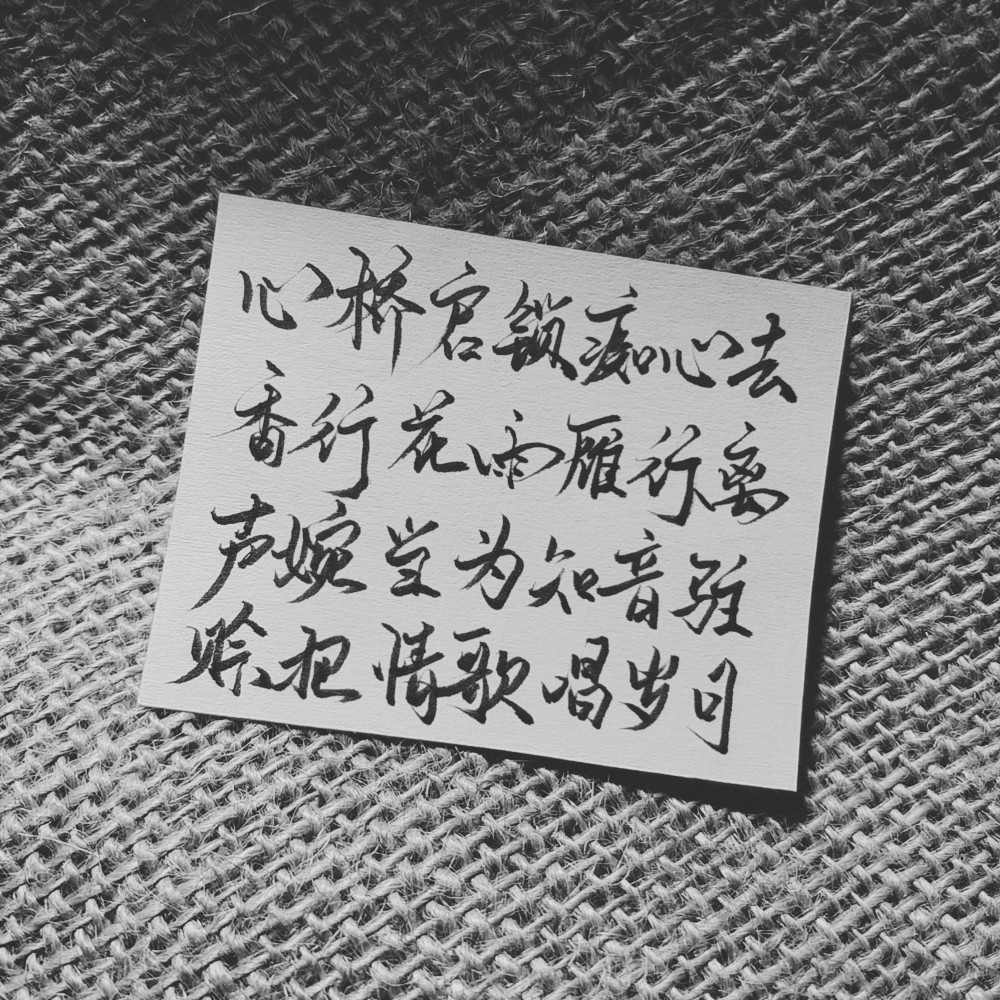 心桥启锁痴心去
香行花雨雁行离
声婉莹为知音驻
赊把情歌唱岁月